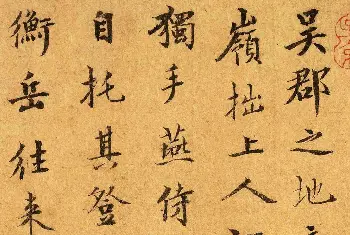 吴郡之地
嶺拙上人
獨手燕侍
自托其登
衡岳往来